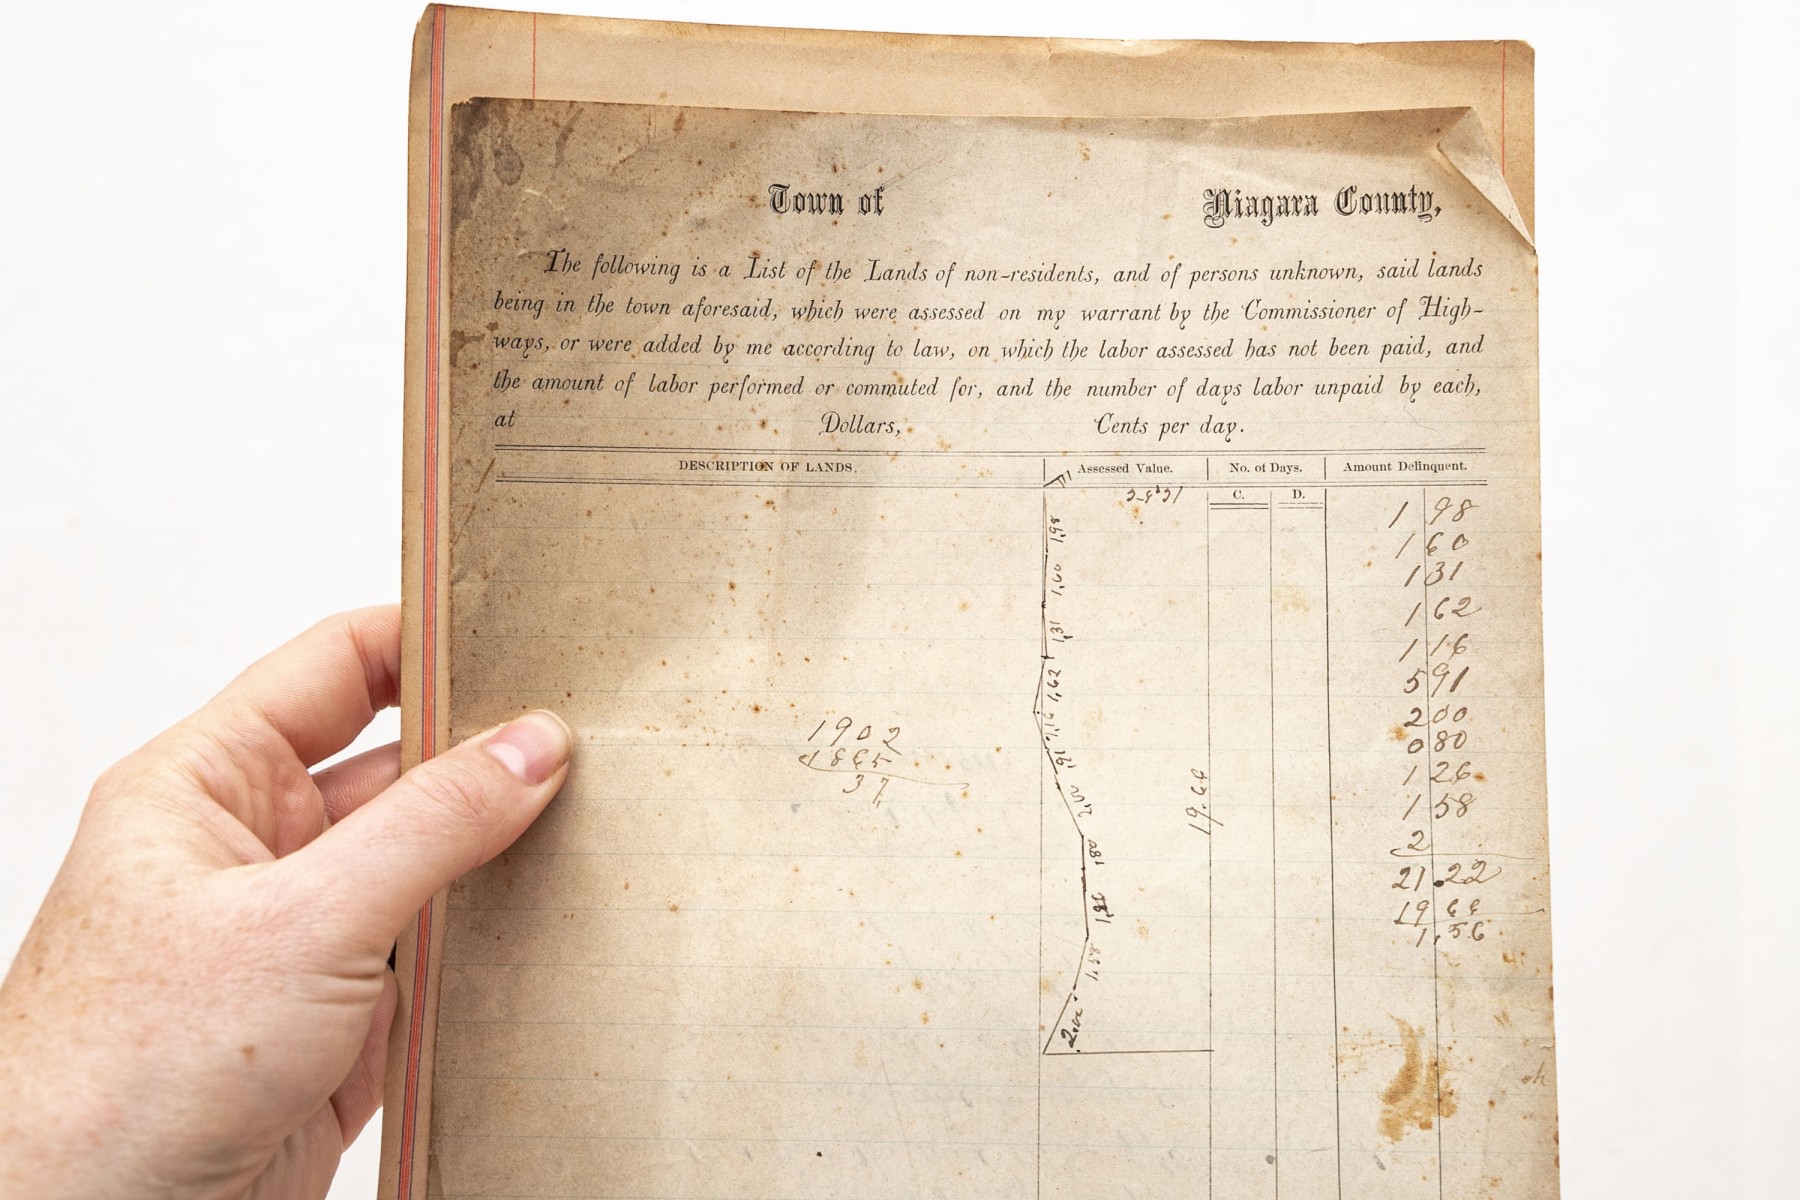 Town of Niagara County,
The following is a List of the Lands of non-residents, and of persons unknown, said lands
being in the town aforesaid, which were assessed on my warrant by the Commissioner of High-
ways, or were added by me according to law, on which the labor assessed has not been paid, and
the amount of labor performed or commuted for, and the number of days labor unpaid by each,
at Dollars, Cents per day.
DESCRIPTION OF LANDS. Assessed Value. No. of Days. Amount Delinquent.
C. D.
1 98
1 60
1 31
1 62
1 16
5 91
2 00
0 80
1 26
1 58
2
21.22
19 66
1.56
1902
1865
37
1,98
1,60
1,31
1,62
1,16
2,00
1,58
2,00
19.66